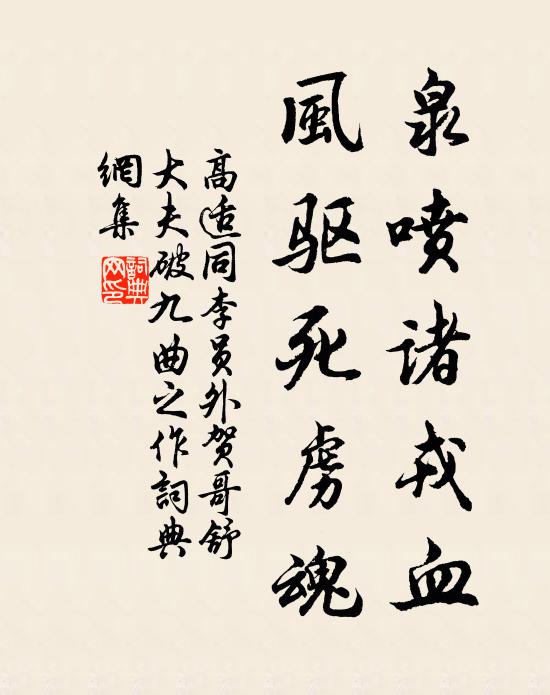 泉喷诸戎血
風驱死虏魂
高适同李员外贺哥舒
大夫破九曲之作詞典
網集
詞典
网印